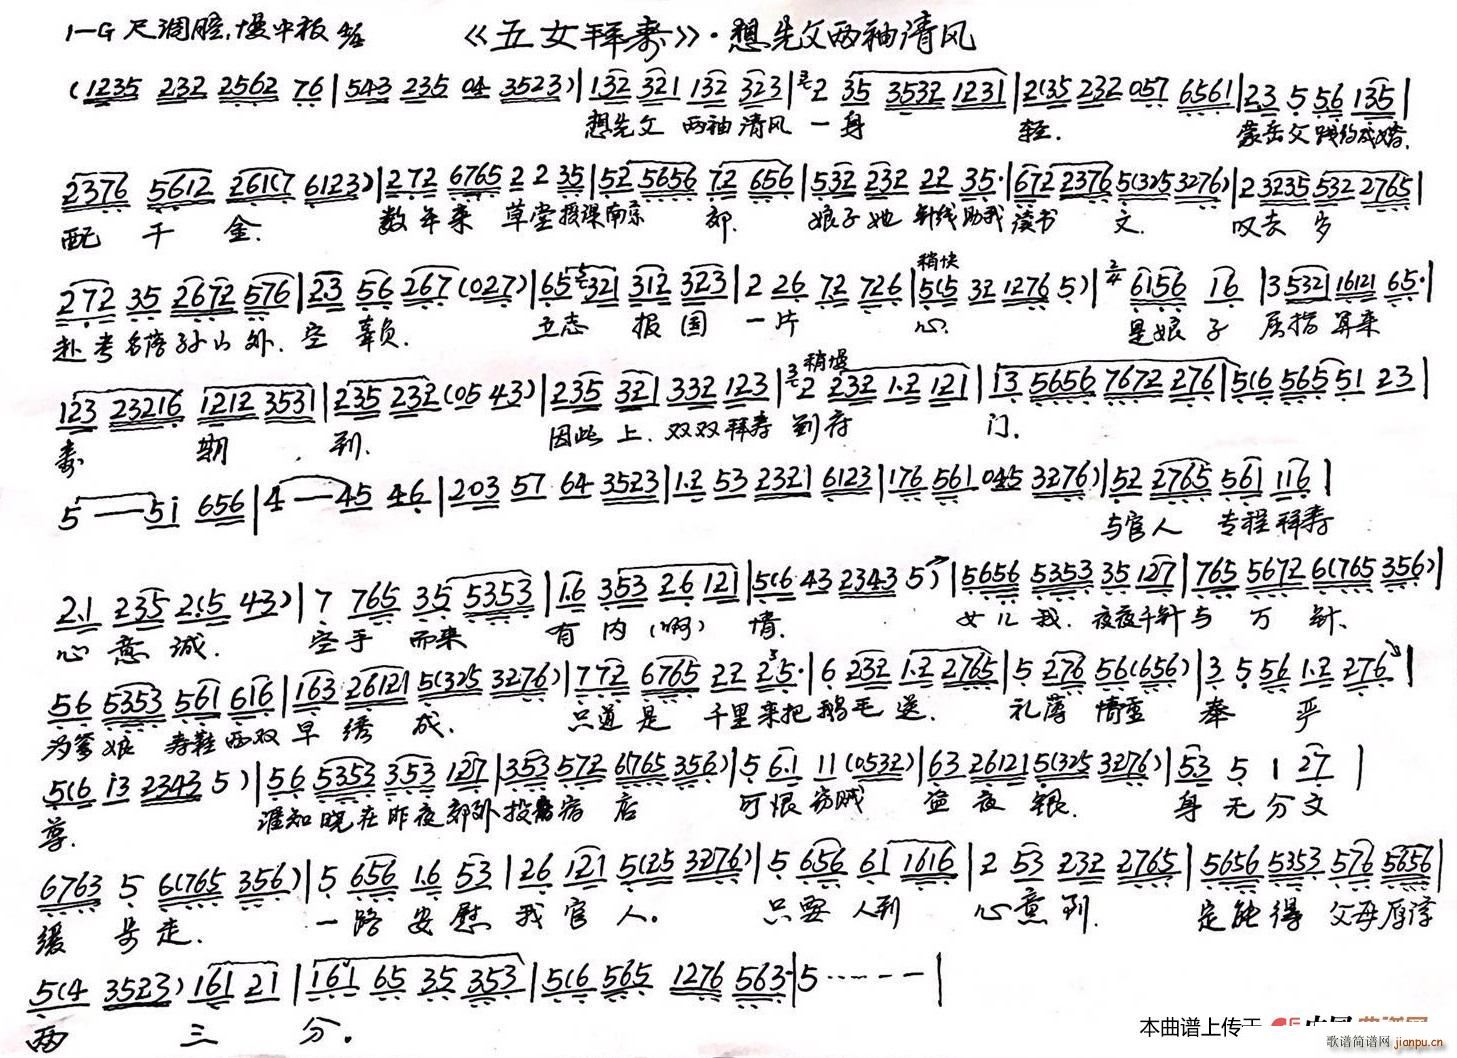 1=G 尺调腔.慢中板 《五女拜寿》·想先父两袖清风
(1235 232 2562 76 | 543 235 04 3523) | 132 321 132 323 | 2 35 3532 1231 | 2(35 232 057 6561 | 23 5 56 135 |
想先父 两袖清风 一身 轻. 蒙岳父践约成婚.
2376 5612 261(7 6123) | 272 6765 2 2 35 | 52 5656 72 656 | 532 232 22 35· | 672 2376 5(325 3276) | 2 3235 532 2765 |
配 千 金. 数年来 草堂授课南京 郊. 娘子她 针线助我 读书 文. 叹去岁
272 35 2672 576 | 23 56 267 (027) | 65 321 312 323 | 2 26 72 726 | 稍快 5(5 32 1276 5) | 2/4 6156 16 | 3532 | 16121 65· |
赴考名落孙山外. 空 辜负. 立志 报国 一片 心. 是娘子 屈指算来
123 23216 1212 3531 | 235 232 (05 43) | 235 32 | 332 123 | 稍慢 2 232 1·2 121 | 13 5656 7672 276 | 5(6 565 51 23 |
寿 期 到. 因此上. 双双拜寿 到府 门.
5 — 51 656 | 4 — 45 46 | 203 57 64 3523 | 1·2 53 2321 6123 | 176 561 045 3276) | 52 2765 561 116 |
与官人 专程拜寿
2·1 235 2(5 43) | 7 765 35 5353 | 1·6 353 26 121 | 5(6 43 2343 5) | 5656 5353 35 127 | 765 5672 6(765 356) |
心意诚. 空手 而来 有内(啊) 情. 女儿我. 夜夜千针与 万 针.
56 5353 561 616 | 163 26121 5(325 3276) | 772 6765 22 25· | 6 232 1·2 2765 | 5 276 56(656) | 3 5 56 1·2 276 |
为爹娘 寿鞋两双 早 绣 成. 只道是 千里来把鹅毛送. 礼薄情重 奉 严
5(6 13 2343 5) | 56 5353 353 127 | 353 572 6(765 356) | 5 6·1 11 (0532) | 63 26121 5(325 3276) | 53 5 1 27 |
尊. 谁知晓在昨夜郊外投宿 店 可恨窃贼 盗夜 银. 身无分文
6763 5 6(765 356) | 5 656 1·6 53 | 26 121 5(25 3276) | 5 656 61 1616 | 2 53 232 2765 | 5656 5353 576 5656 |
缓 步 走. 一路安慰我官 人. 只要人到 心意到. 定能得 父母厚谆
5(4 3523) 161 21 | 161 65 35 353 | 5(6 565 1276 563· | 5 ······ — |
两 三 分.
本曲谱上传于
歌谱简谱网 jianpu.cn